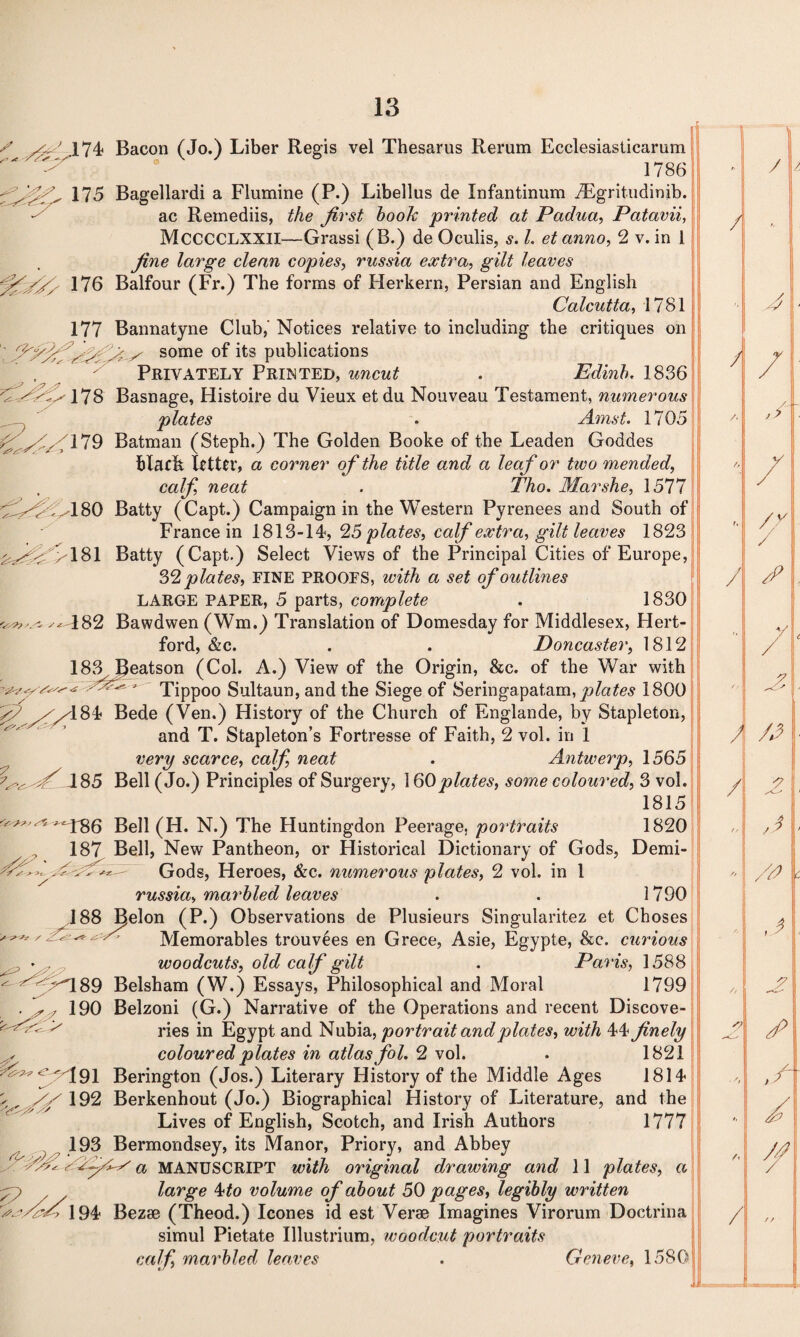 13
174 Bacon (Jo.) Liber Regis vel Thesarus Rerum Ecclesiasticarum
1786
175 Bagellardi a Flumine (P.) Libellus de Infantinum Ægritudinib.
ac Remediis, the first book printed at Padua, Patavii,
MCCCCLXXII—Grassi (B.) de Oculis, s. l. et anno, 2 v. in 1
fine large clean copies, russia extra, gilt leaves
176 Balfour (Fr.) The forms of Herkern, Persian and English
Calcutta, 1781
177 Bannatyne Club, Notices relative to including the critiques on
some of its publications
PRIVATELY PRINTED, uncut . Edinb. 1836
178 Basnage, Histoire du Vieux et du Nouveau Testament, numerous
plates . Amst. 1705
179 Batman (Steph.) The Golden Booke of the Leaden Goddes
black letter, a corner of the title and a leaf or two mended,
calf, neat . Tho. Marshe, 1577
180 Batty (Capt.) Campaign in the Western Pyrenees and South of
France in 1813-14, 25 plates, calf extra, gilt leaves 1823
181 Batty (Capt.) Select Views of the Principal Cities of Europe,
32 plates, FINE PROOFS, with a set of outlines
LARGE PAPER, 5 parts, complete . 1830
182 Bawdwen (Wm.) Translation of Domesday for Middlesex, Hert-
ford, &c. . . Doncaster, 1812
183 Beatson (Col. A.) View of the Origin, &c. of the War with
Tippoo Sultaun, and the Siege of Seringapatam, plates 1800
184 Bede (Ven.) History of the Church of Englande, by Stapleton,
and T. Stapleton's Fortresse of Faith, 2 vol. in 1
very scarce, calf, neat . Antwerp, 1565
185 Bell (Jo.) Principles of Surgery, 160 plates, some coloured, 3 vol.
1815
186 Bell (H. N.) The Huntingdon Peerage, portraits 1820
187 Bell, New Pantheon, or Historical Dictionary of Gods, Demi-
Gods, Heroes, &c. numerous plates, 2 vol. in 1
russia, marbled leaves . . 1790
188 Belon (P.) Observations de Plusieurs Singularitez et Choses
Memorables trouvées en Grece, Asie, Egypte, &c. curious
woodcuts, old calf gilt . Paris, 1588
189 Belsham (W.) Essays, Philosophical and Moral 1799
190 Belzoni (G.) Narrative of the Operations and recent Discove-
ries in Egypt and Nubia, portrait and plates, with 44 finely
coloured plates in atlas fol. 2 vol. . 1821
191 Berington (Jos.) Literary History of the Middle Ages 1814
192 Berkenhout (Jo.) Biographical History of Literature, and the
Lives of English, Scotch, and Irish Authors 1777
193 Bermondsey, its Manor, Priory, and Abbey
a MANUSCRIPT with original drawing and 11 plates, a
large 4to volume of about 50 pages, legibly written
194 Bezæ (Theod.) Icones id est Veræ Imagines Virorum Doctrina
simul Pietate Illustrium, woodcut portraits
calf, marbled leaves . Geneve, 1580